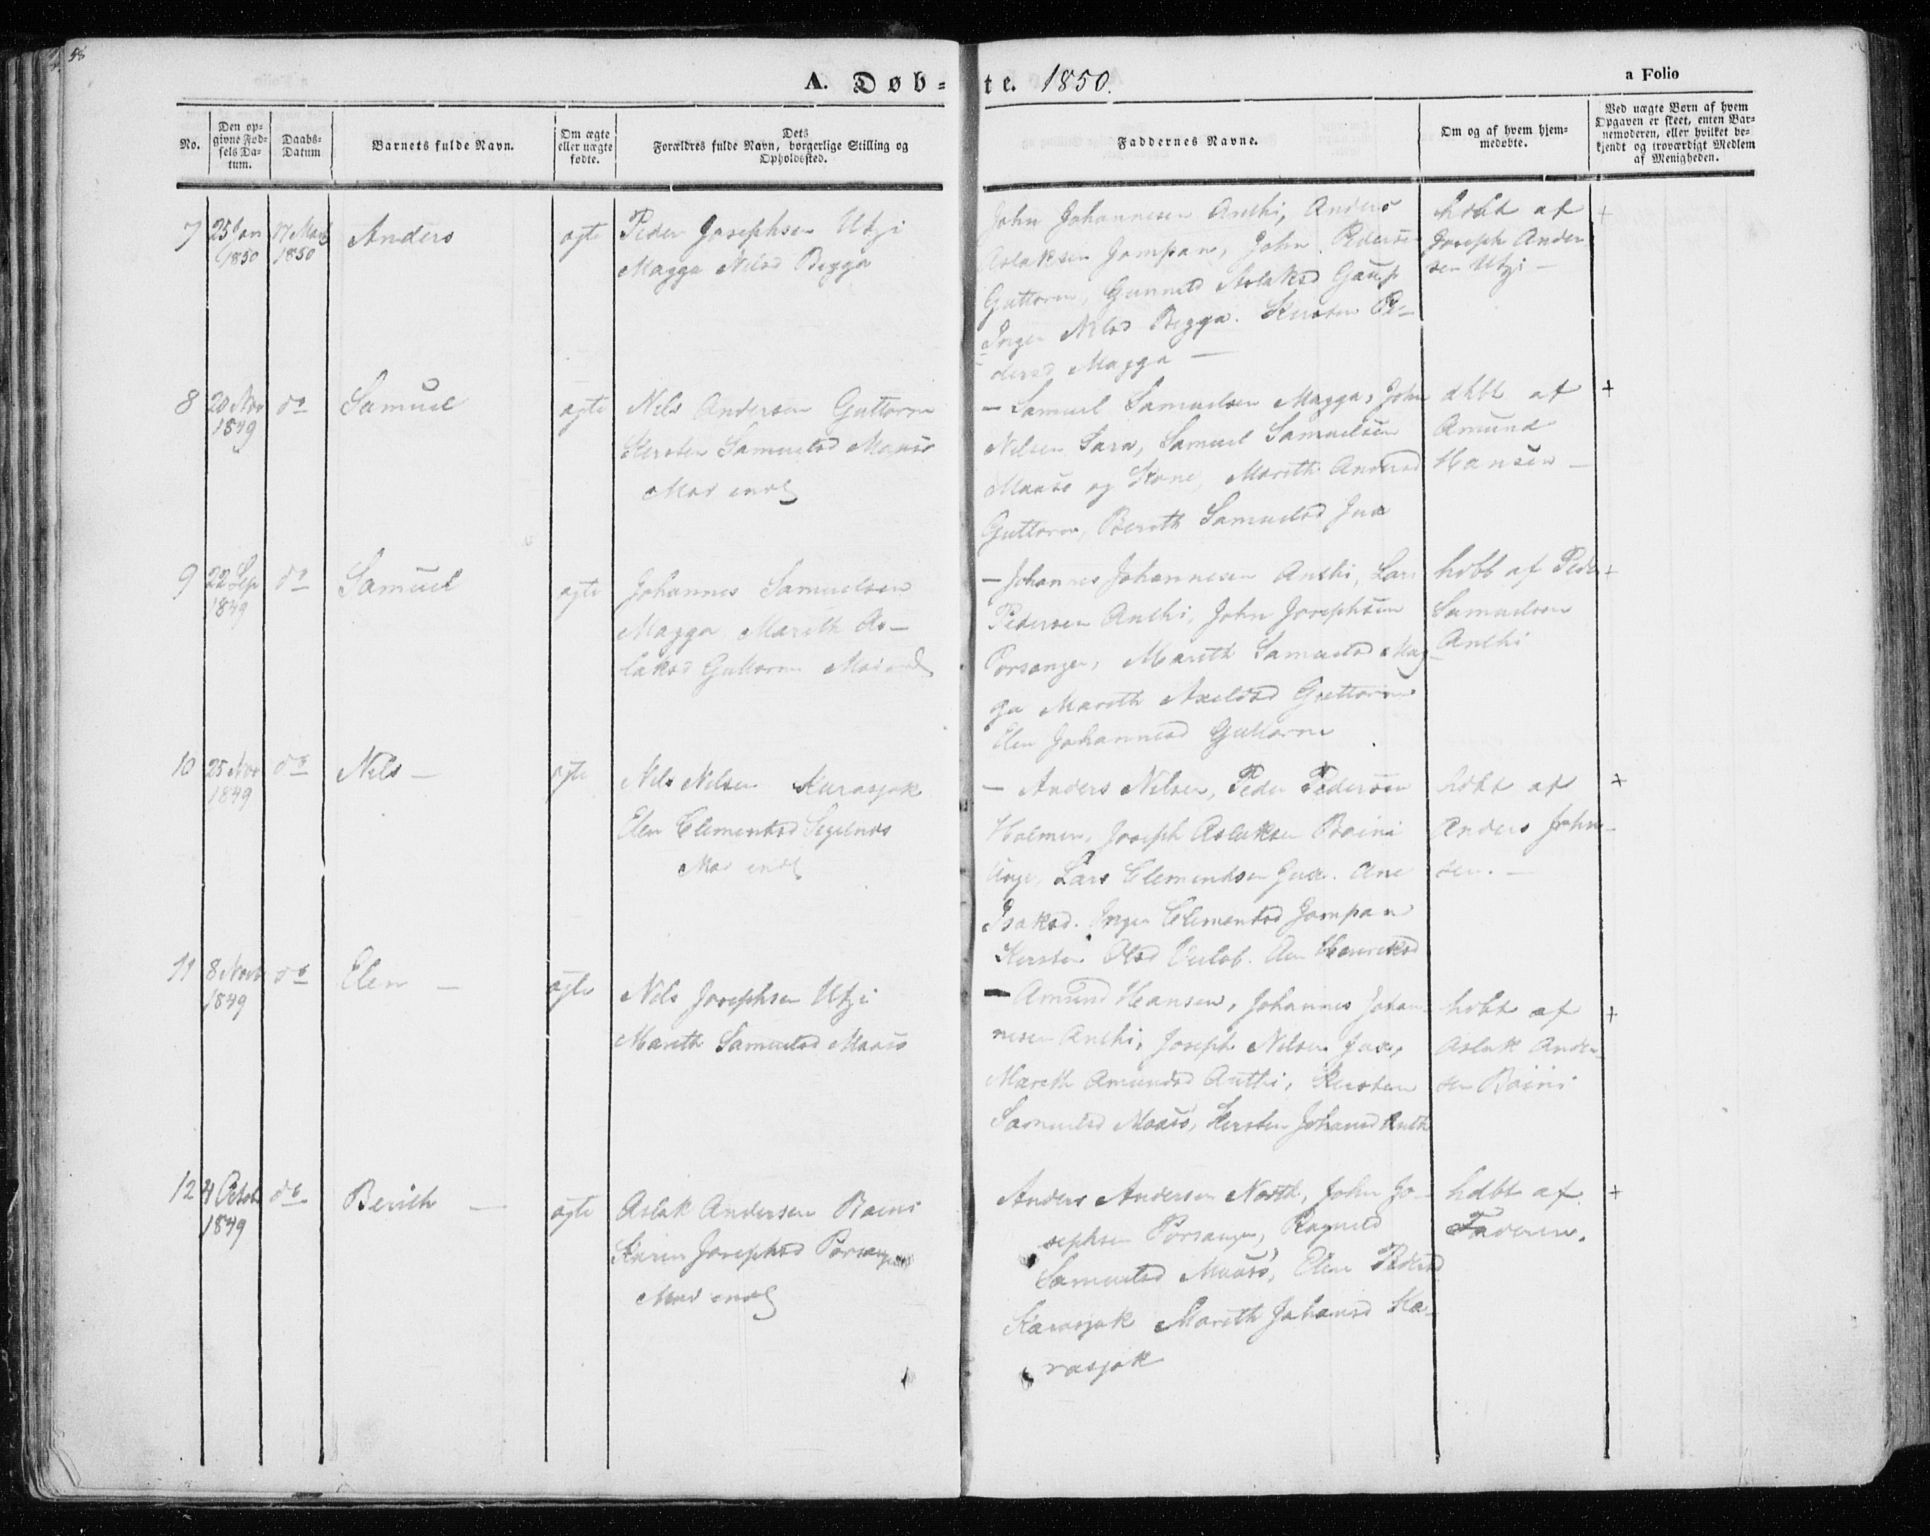 58
A. Døb-te. 1850.
a Folio
No.
Den op-
givne Fød-
sels Da-
tum.
Daabs-
Datum
Barnets fulde Navn.
Om ægte
eller uægte
fødte.
Dets
Forældres fulde Navn, borgerlige Stilling og
Opholdssted.
Faddernes Navne.
Om og af hvem hjem-
medøbte.
Ved uægte Børn af hvem
Opgaven er skeet, enten Bar-
nemoderen, eller hvilket be-
kjendt og troværdigt Medlem
af Menigheden.
7
25 Jan
1850
17 Marts
1850
Anders
ægte
Peder Josephsen Utzi
Magga Nilsd Bigga
John Johannesen Anthi, Anders
Aslaksen Jompan, John Pedersen
Guttorm, Gunnild Aslaksd Gaup
Inger Nilsd Bigga. Kirsten Pe-
dersd Magga —
hdbt af
Joseph Ander
sen Utzi —
+
8
20 Nov
1849
do
Samuel
ægte
Nils Andersen Guttorm
Kirsten Samuelsd Maaso
Mod indl
— Samuel Samuelsen Magga, John
Nilsen Sara, Samuel Samuelsen
Maaso og Kone, Marith Andersd
Guttorm, Berith Samuelsd Jux
dbt af
Amund
Hansen —
+
9
22 Sep
1849
do
Samuel
ægte
Johannes Samuelsen
Magga, Marith As-
laksd Guttorm Mod indl
— Johannes Johannesen Anthi, Lars
Pedersen Anthi, John Josephsen
Porsanger, Marith Samuelsd Mag-
ga Marith Axelsd Guttorm
Elen Johannesd Guttorm
hdbt af Peder
Samuelsen
Anthi
+
10
25 Nov
1849
do
Nils —
ægte
Nils Nilsen Karasjok
Elen Clementsd
Mod indl
— Anders Nilsen, Peder Pedersen
Holmen, Joseph Aslaksen Baini
Lars Clementsen Jux. Ane
Isaksd. Inger Clementsd Jompan
Kirsten Olsd Henriksd
hdbt af
Anders John-
sen. —
+
11
8 Novb
1849
do
Elen —
ægte
Nils Josephsen Utzi
Marith Samuelsd Maaso
— Amund Hansen, Johannes Johan-
nesen Anthi, Joseph Nilsen Jux,
Marith Amundsd Anthi, Kirsten
Samuelsd Maaso, Kirsten Johansd Anth
hdbt af
Aslak Ander-
sen Baini
+
12
4 Octob
1849
do
Berith —
ægte
Aslak Andersen Baini
Karen Josephsd Porsanger
Mod indl
Anders Andersen North, John Jo-
sephsen Porsanger, Ragnild
Samuelsd Maaso, Elen Pedersd
Karasjok Marith Johansd Ka-
rasjok
hdbt af
Faderen.
+